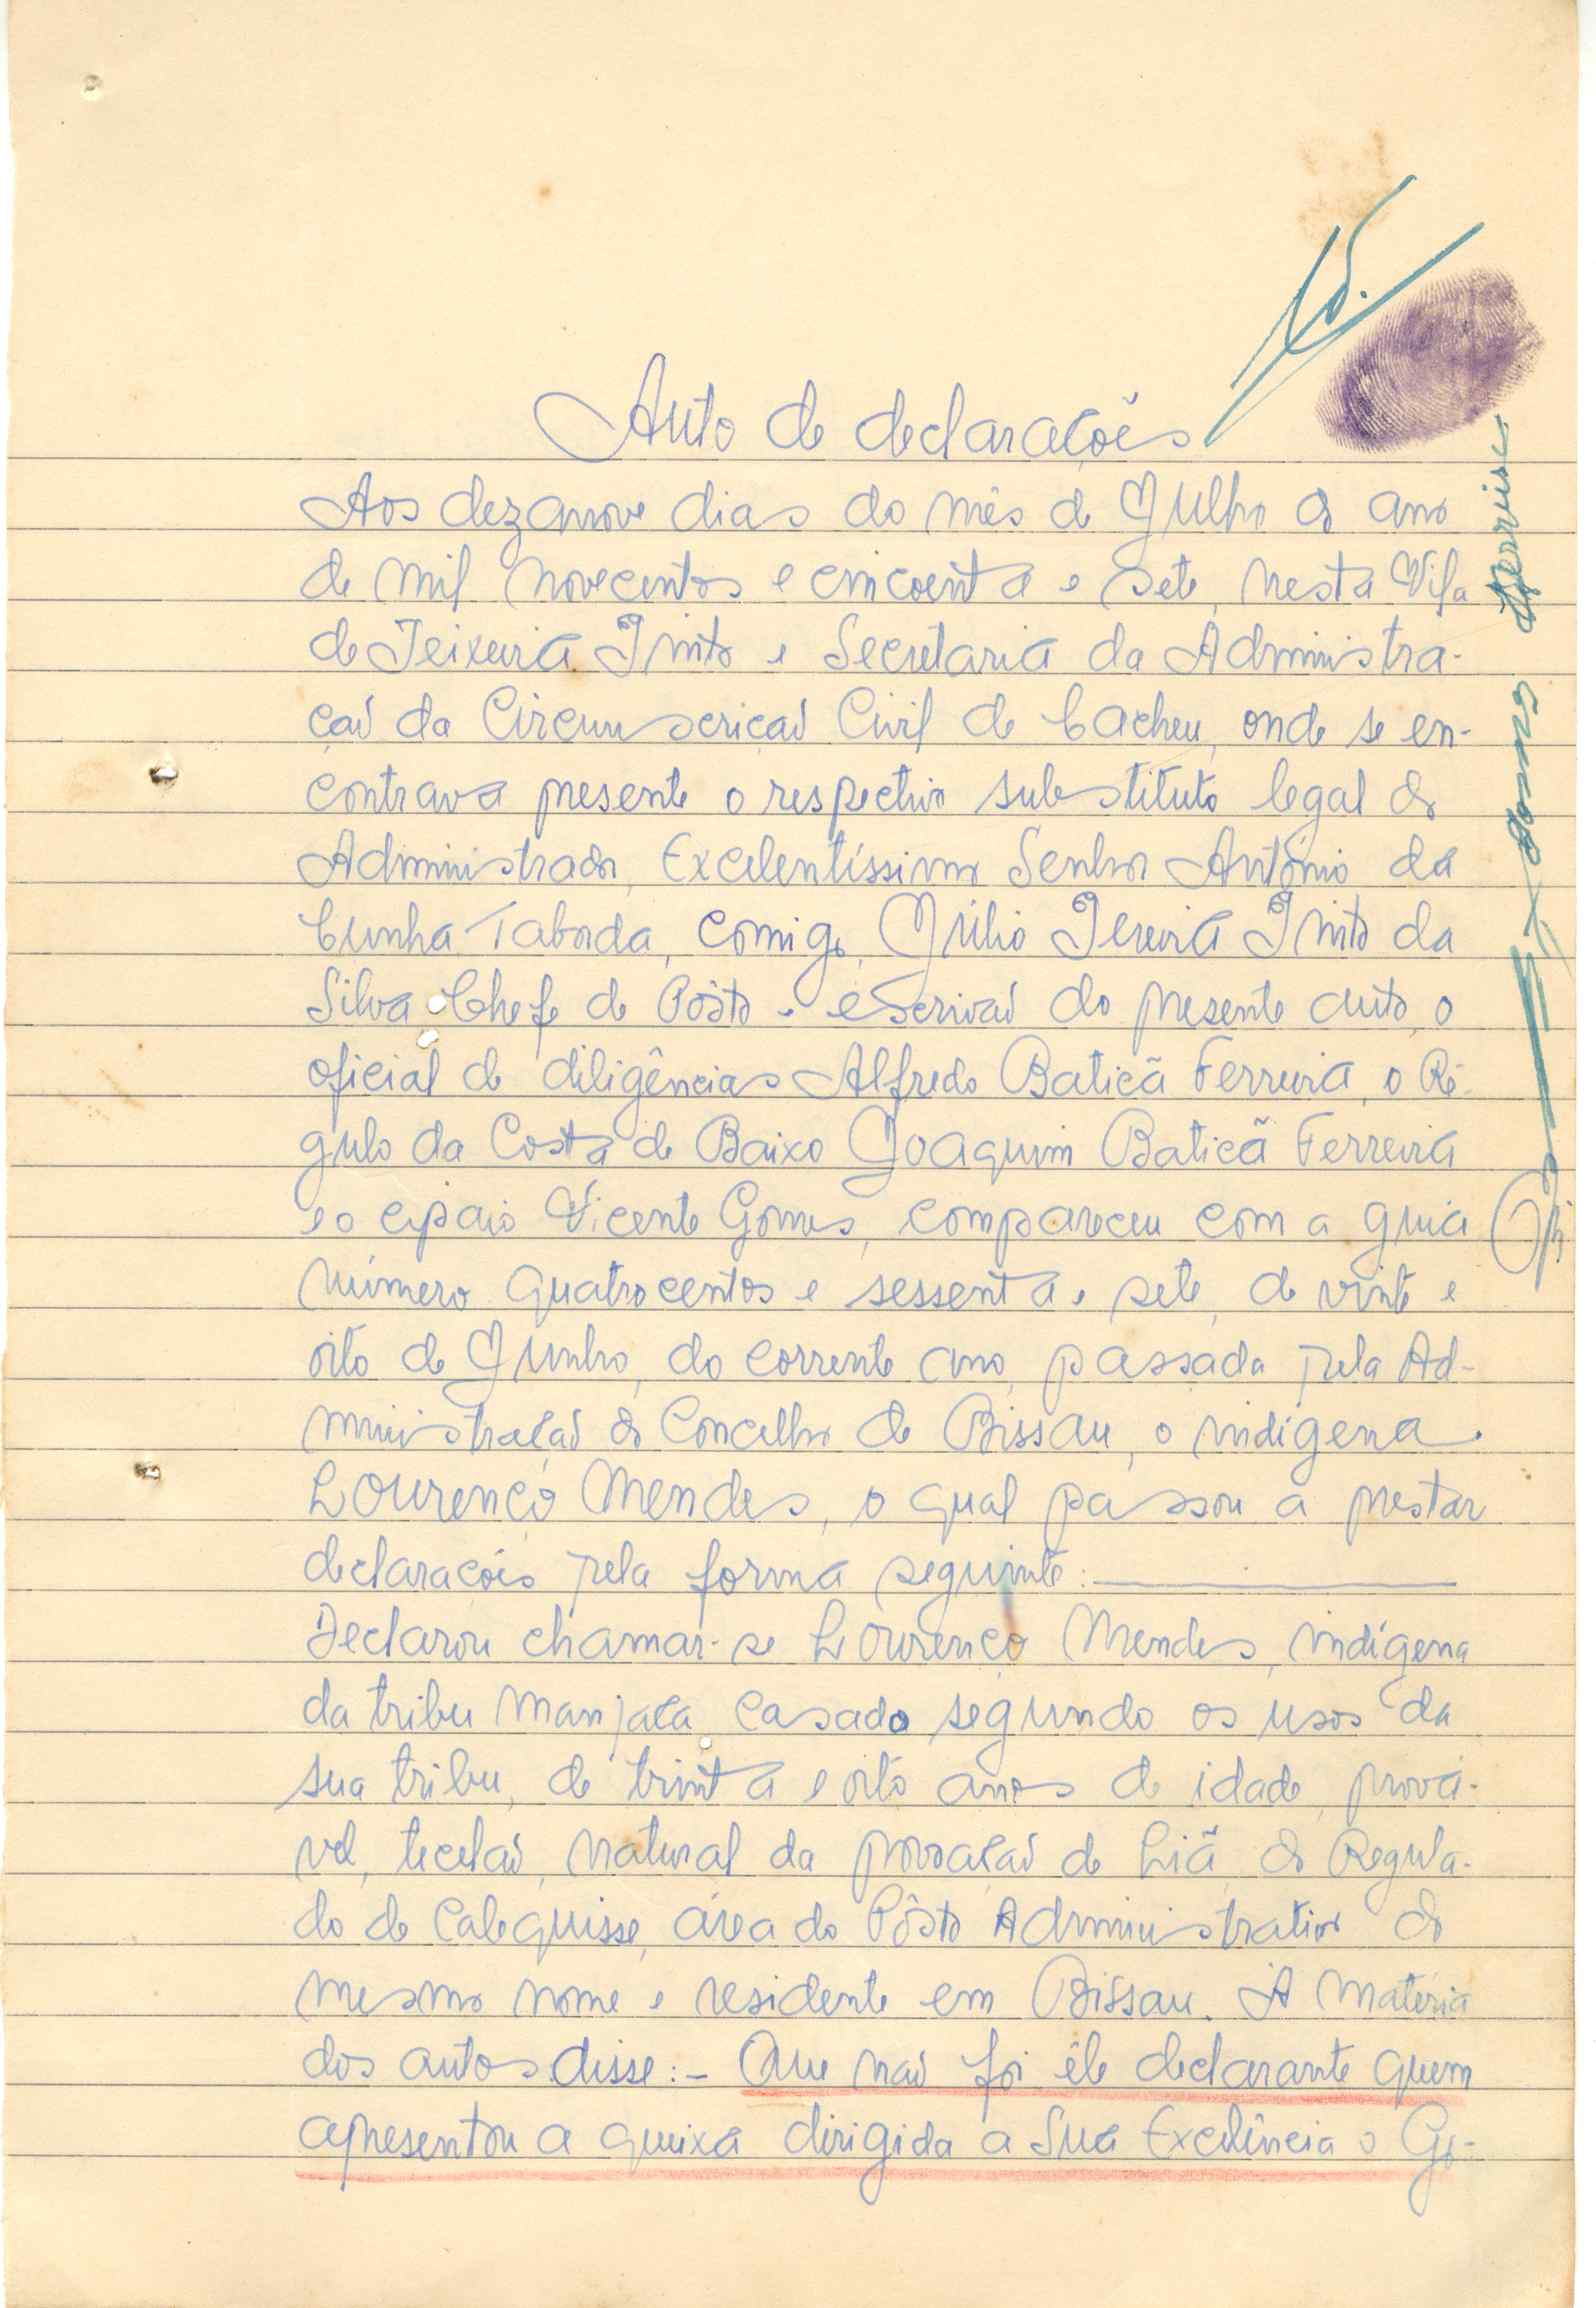 Auto de declarações
Aos dezanove dias do mês de Julho do ano
de mil novecentos e cincoenta e sete, nesta Vila
de Teixeira Pinto e Secretaria da Administra-
ção da Circunscrição Civil de Cacheu, onde se en-
contrava presente o respectivo substituto legal do
Administrador, Excelentíssimo Senhor António da
Cunha Taborda, comigo, Júlio Pereira Pinto da
Silva, Chefe de Pôsto e escrivão do presente auto, o
oficial de diligências Alfredo Baticã Ferreira, o Ré-
gulo da Costa de Baixo Joaquim Baticã Ferreira
e o cipaio Vicente Gomes, compareceu com a guia
número quatrocentos e sessenta e sete, de vinte e
oito de Junho, do corrente ano, passada pela Ad-
ministração do Concelho de Bissau, o indígena
Lourenço Mendes, o qual passou a prestar
declarações pela forma seguinte:
Declarou chamar-se Lourenço Mendes, indígena
da tribu Manjaca, casado segundo os usos da
sua tribu, de trinta e oito anos de idade, prová-
vel, tecelão, natural da povoação de Liã, do Regula-
do de Calequisse, área do Pôsto Administrativo do
mesmo nome e residente em Bissau. À matéria
dos autos disse:- Que não foi êle declarante quem
apresentou a queixa dirigida a Sua Excelência o Go-